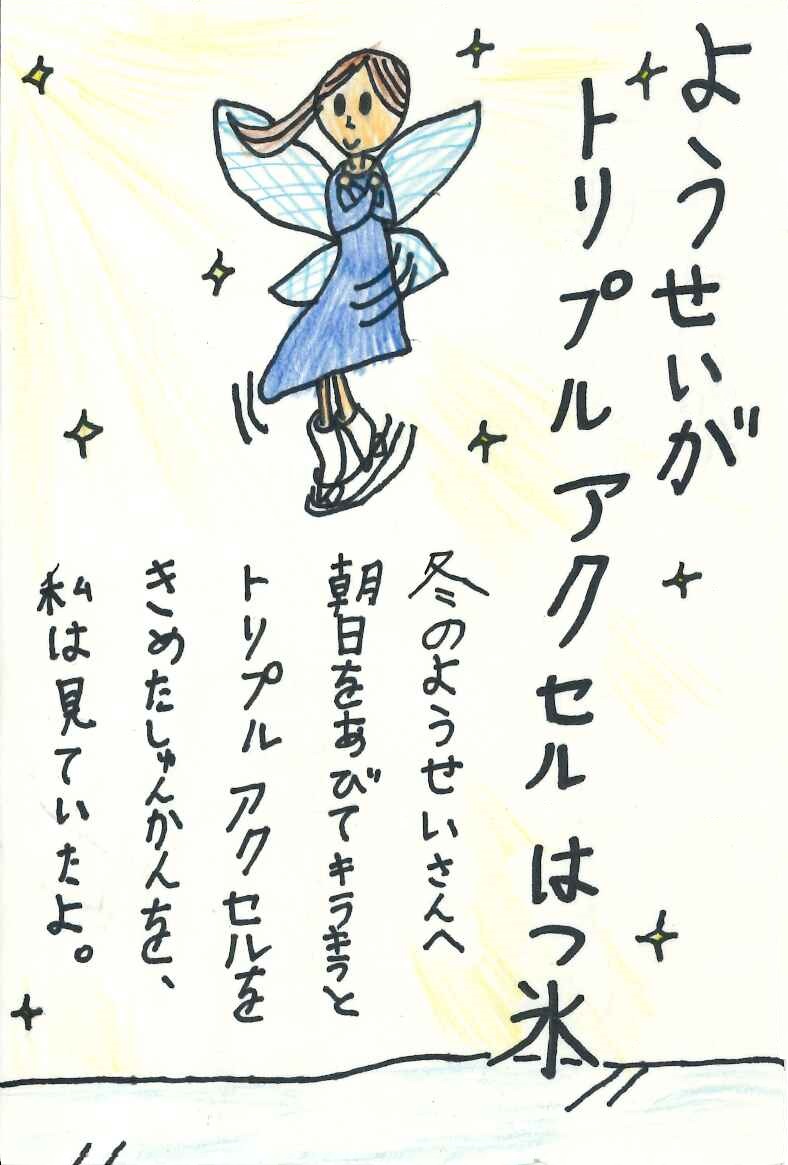 ようせいが
トリプルアクセルはつ氷
冬のようせいさんへ
朝日をあびてキラキラと
トリプルアクセルを
きめたしゅんかんを、
私は見ていたよ。